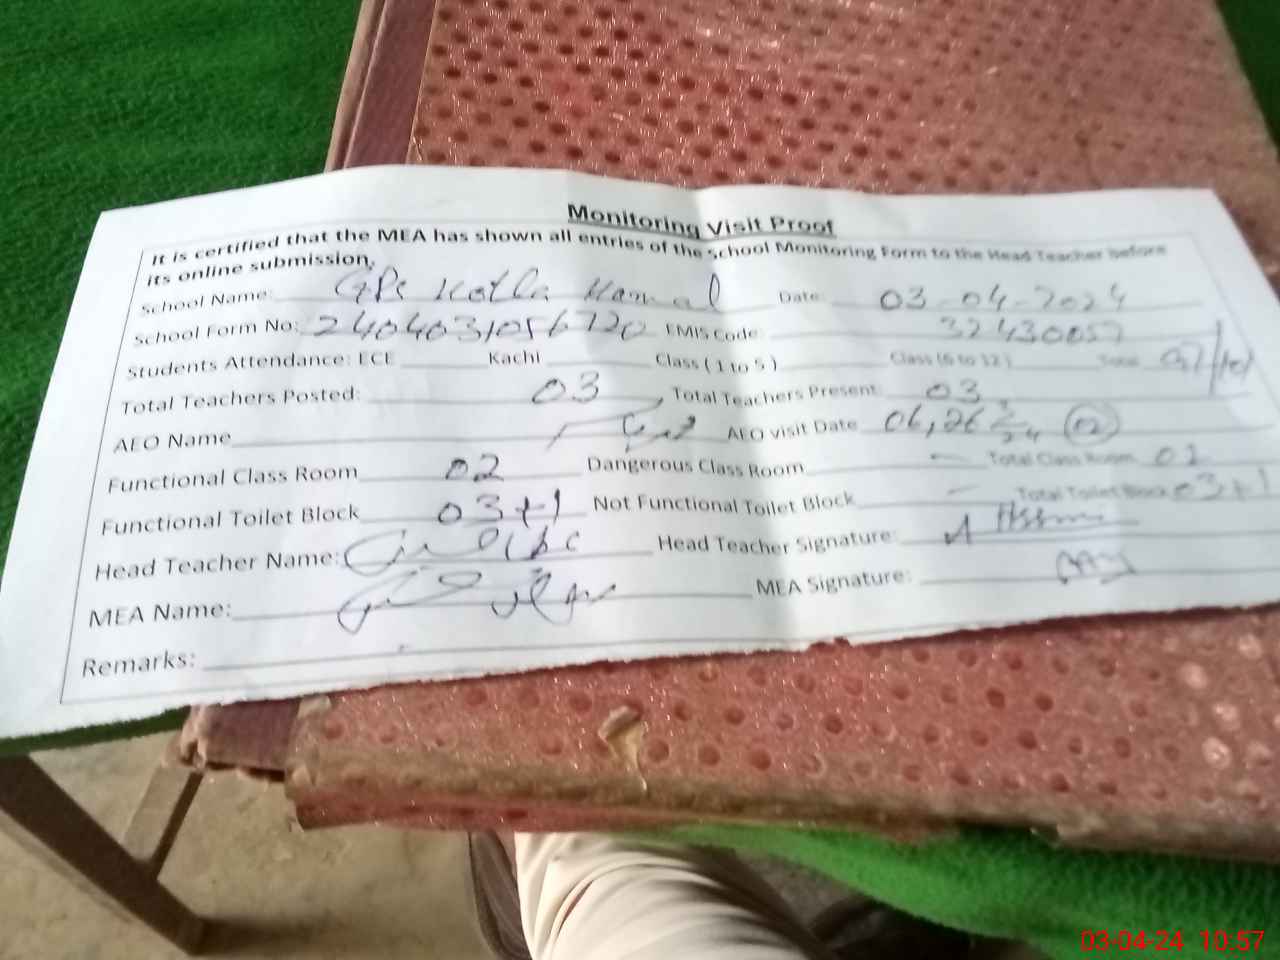 Monitoring Visit Proof
It is certified that the MEA has shown all entries of the School Monitoring Form to the Head Teacher before
its online submission.
School Name: GPS Kotla Hamal Date: 03-04-2024
School Form No: EMIS Code: 32430057
Students Attendance: ECE Kachi Class (1 to 5) Class (6 to 12) Total
Total Teachers Posted: 03 Total Teachers Present: 03
AEO Name AEO visit Date 06,26 02
Functional Class Room 02 Dangerous Class Room - Total Class Room 02
Functional Toilet Block 03+1 Not Functional Toilet Block - Total Toilet Block 03+1
Head Teacher Name: Head Teacher Signature:
MEA Name: MEA Signature:
Remarks:
03-04-24 10:57